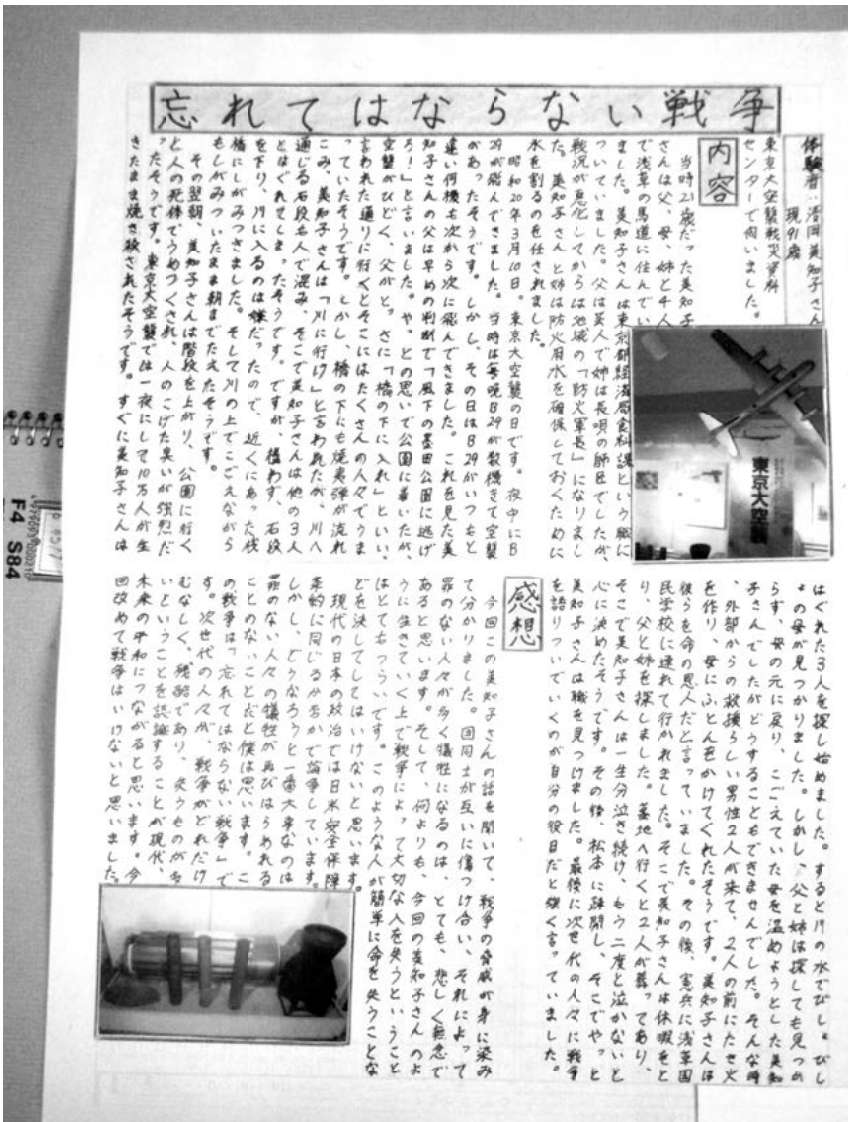 忘れてはならない戦争
体験者：清岡美知子さん
現91歳
東京大空襲戦災資料
センターで伺いました。
内容
当時21歳だった美知子
さんは父、母、姉と4人
で浅草の馬道に住んでい
ました。美知子さんは東京都経済局食料課という職に
ついていました。父は芸人で姉は長唄の師匠でしたが、
戦況が悪化してからは地域の「防火軍長」になりまし
た。美知子さんと姉は防火用水を確保しておくために
氷を割るのを任されました。
昭和20年3月10日。東京大空襲の日です。夜中にB
29が飛んできました。当時は毎晩B29が数機きて空襲
があったそうです。しかし、その日はB29がいつもと
違い何機も次から次に飛んできました。これを見た美
知子さんの父は早めの判断で「風下の墨田公園に逃げ
ろ！」と言いました。やっとの思いで公園に着いたが、
空襲がひどく、父がとっさに「橋の下に入れ」といい、
言われた通りに行くとそこにはたくさんの人々でうま
っていたそうです。しかし、橋の下にも焼夷弾が流れ
こみ、美知子さんは「川に行け」と言われたが、川へ
通じる石段も人で混み、そこで美知子さんは他の3人
とはぐれてしまったそうです。ですが、構わず、石段
を下り、川に入るのは嫌だったので、近くにあった杭
橋にしがみつきました。そして川の上でこごえながら
もしがみついたまま朝までたえたそうです。
その翌朝、美知子さんは階段を上がり、公園に行く
と人の死体でうめつくされ、人のこげた臭いが強烈だ
ったそうです。東京大空襲では一夜にして10万人が生
きたまま焼き殺されたそうです。すぐに美知子さんは
東京大空襲
はぐれた3人を探し始めました。すると川の水でびしょびし
ょの母が見つかりました。しかし、父と姉は探しても見つか
らず、母の元に戻り、こごえていた母を温めようとした美知
子さんでしたがどうすることもできませんでした。そんな時
、外部からの救援らしい男性2人が来て、2人の前にたき火
を作り、母にふとんをかけてくれたそうです。美知子さんは
彼らを命の恩人だと言っていました。その後、憲兵に浅草国
民学校に連れて行かれました。そこで美知子さんは休暇をと
り、父と姉を探しました。墓地へ行くと2人が葬ってあり、
そこで美知子さんは一生分泣き続け、もう二度と泣かないと
心に決めたそうです。その後、松本に疎開し、そこでやっと
美知子さんは職を見つけました。最後に次世代の人々に戦争
を語りついでいくのが自分の役目だと強く言っていました。
感想
今回この美知子さんの話を聞いて、戦争の脅威が身に染み
て分かりました。国同士が互いに傷つけ合い、それによって
罪のない人々が多く犠牲になるのは、とても、悲しく無念で
あると思います。そして、何よりも、今回の美知子さんのよ
うに生きていく上で戦争によって大切な人を失うということ
はとてもつらいです。このような人が簡単に命を失うことな
どを決してしてはいけないと思います。
現代の日本の政治では日米安全保障
条約に同じるか否かで論争しています。
しかし、どうなろうと一番大事なのは
罪のない人々の犠牲が再びはらわれる
ことのないことだと僕は思います。こ
の戦争は「忘れてはならない戦争」で
す。次世代の人々が、戦争がどれだけ
むなしく、残酷であり、失うものが多
いということを認識することが現代、
未来の平和につながると思います。今
回改めて戦争はいけないと思いました。
F4 S84